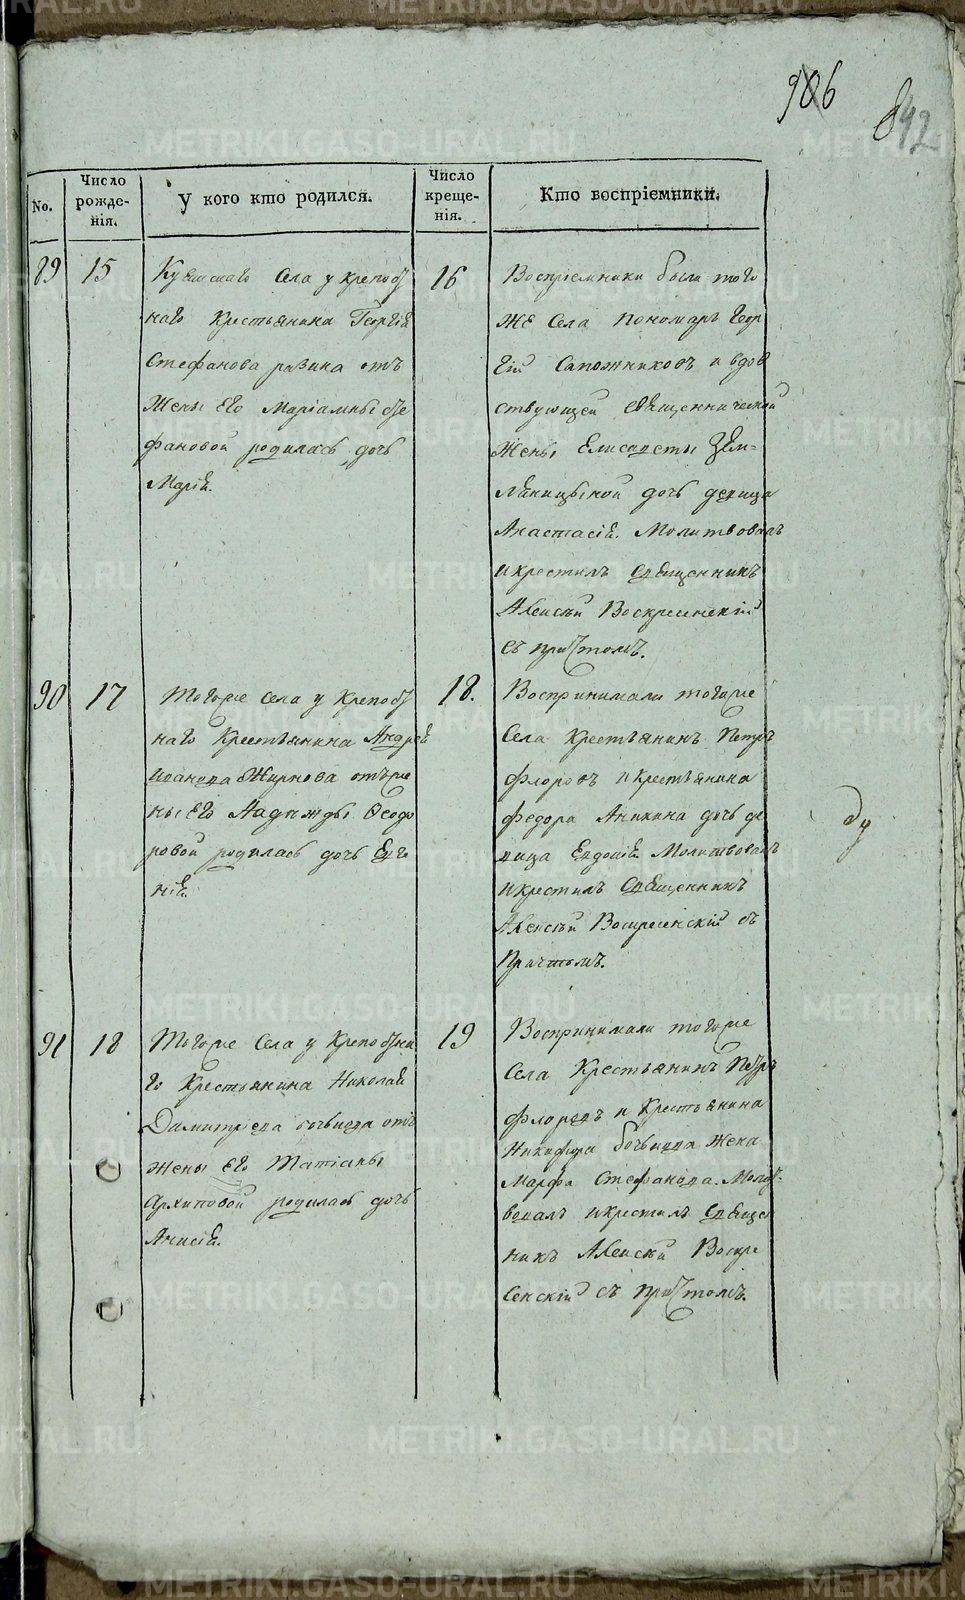 906
892
No.
Число рожде-нія.
У кого кто родился.
Число креще-нія.
Кто воспріемники.
89
15
Села у крепост
наго Крестьянина Георгія
Стефанова отъ
жены его Маріамны Сте
фановой родилась дочь
Марія.
16
Воспріемники были того
же Села пономарь Геор
гій Сапожниковъ и вдов
ствующей священнической
жены Елисаветы Зем-
ляницыной дочь девица
Анастасія. Молитвовалъ
и крестилъ Священникъ
Алексѣй Воскресенскій
съ причтомъ.
90
17
Тогоже Села у Крепост
наго Крестьянина Андрея
Иванова Жирнова отъ же
ны его Надежды Ѳеодо
ровой родилась дочь Евге
нія.
18.
Воспринимали тогоже
Села Крестьянинъ Петръ
Флоровъ и крестьянина
Федора Аникина дочь де
вица Евдокія. Молитвовалъ
и крестилъ Священникъ
Алексѣй Воскресенскій съ
Причтомъ.
91
18
Тогоже Села у Крепостна
го Крестьянина Николая
Димитріева отъ
жены его Татіаны
Архиповой родилась дочь
Анисія.
19
Воспринимали тогоже
Села Крестьянинъ Петръ
Флоровъ и Крестьянина
Никифора жена
Марфа Стефанова. Молит-
вовалъ и крестилъ Священ
никъ Алексѣй Воскре
сенскій съ причтомъ.
METRIKI.GASO-URAL.RU